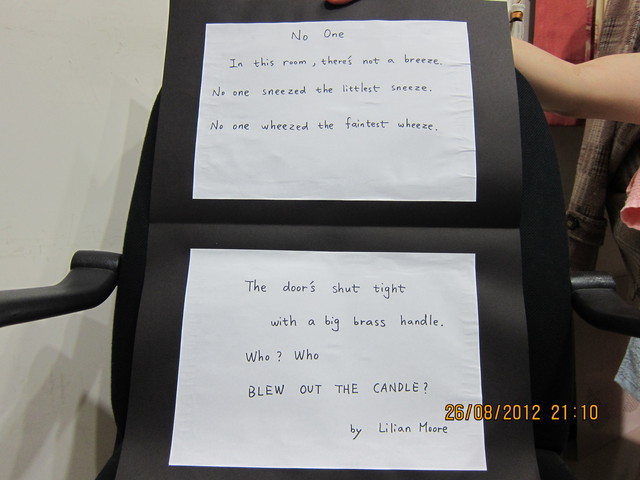 No One
In this room, there's not a breeze.
No one sneezed the littlest sneeze.
No one wheezed the faintest wheeze.
The door's shut tight
with a big brass handle.
Who? Who
BLEW OUT THE CANDLE?
by Lilian Moore
26/08/2012 21:10